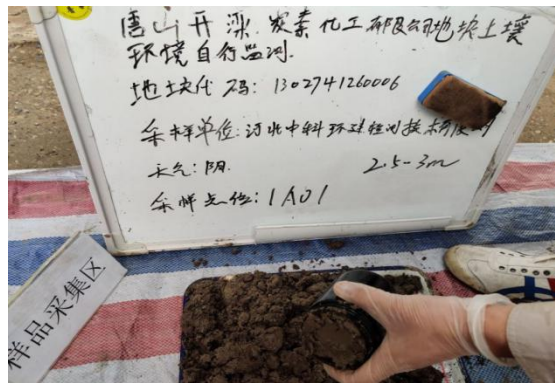 唐山开滦炭素化工有限公司地块土壤
环境自行监测
地块代码：1302741260006
采样单位：河北中科环境检测技术有限公司
天气：阴 2.5-3m
采样点位：1A01
样品采集区